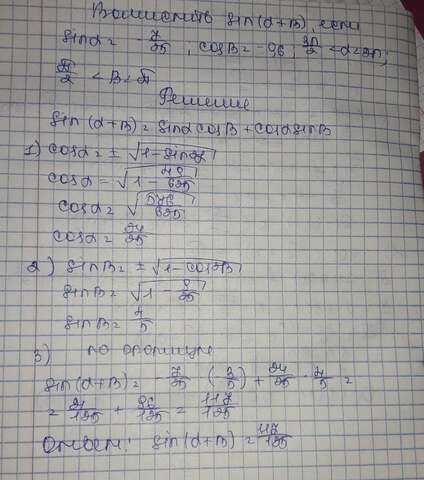 Вычислить sin(α+β), если
sinα = -7/25, cosβ = -0,6; 3π/2 < α < 2π;
π/2 < β < π
Решение
sin(α+β) = sinα cosβ + cosα sinβ
1) cosα = ± √1-sin²α
cosα = √1 - 49/625
cosα = √576/625
cosα = 24/25
2) sinβ = ± √1-cos²β
sinβ = √1 - 9/25
sinβ = 4/5
3) по формуле
sin(α+β) = -7/25 · (3/5) + 24/25 · 4/5 =
= 21/125 + 96/125 = 117/125
Ответ: sin(α+β) = 117/125